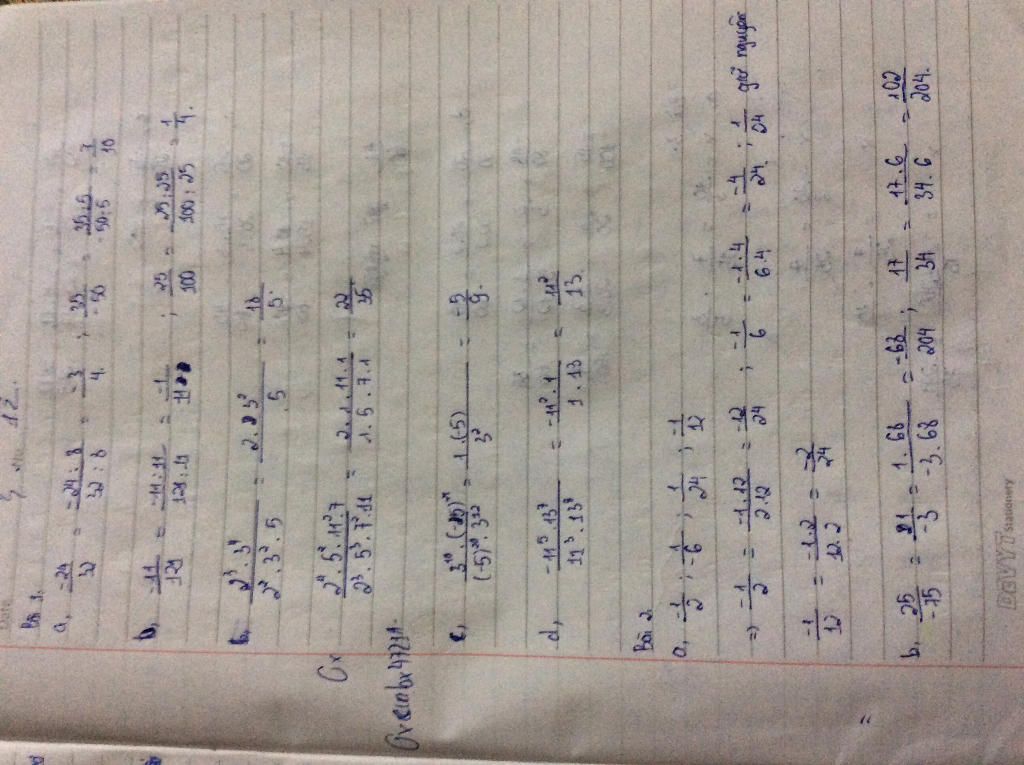 Bài 1.
a, -24/32 = -24:8/32:8 = -3/4. ; 35/-50 = 35:5/-50:5 = 7/10
b, -11/121 = -11:11/121:11 = -1/11 ; 25/100 = 25:25/100:25 = 1/4.
b, 2³.3⁴/2².3².5 = 2.3²/5 = 18/5.
2⁴.5².11².7/2³.5³.7².11 = 2.1.11.1/1.5.7.1 = 22/35
c, 3¹⁰.(-5)²¹/(-5)²⁰.3¹² = 1.(-5)/3² = -5/9.
d, -11⁵.13⁷/11³.13⁸ = -11².1/1.13 = 11²/13.
Bài 2.
a, -1/2 ; -1/-6 ; 1/24 ; -1/12
=> -1/2 = -1.12/2.12 = -12/24 ; -1/6 = -1.4/6.4 = -4/24. ; 1/24 giữ nguyên
-1/12 = -1.2/12.2 = -2/24
b, 25/-75 = 1/-3 = 1.68/-3.68 = -68/204 ; 17/34 = 17.6/34.6 = 102/204.
DEVYT Stationery